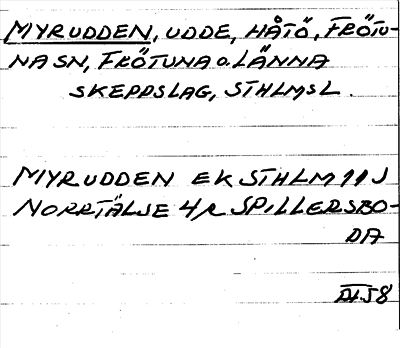 MYRUDDEN, UDDE, HÅTÖ, FRÖTU-
NA SN, FRÖTUNA o. LÄNNA
SKEPPSLAG, STHLMSL.
MYRUDDEN EK STHLM 11J
NORRTÄLSE 4/2 SPILLERSBO-
DA
IX.58